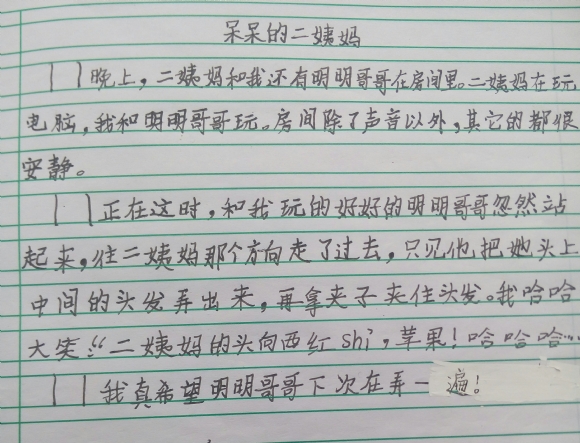 呆呆的二姨妈
晚上，二姨妈和我还有明明哥哥在房间里。二姨妈在玩
电脑，我和明明哥哥玩。房间除了声音以外，其它的都很
安静。
正在这时，和我玩的好好的明明哥哥忽然站
起来，往二姨妈那个方向走了过去，只见他把她头上
中间的头发弄出来，再拿夹子夹住头发。我哈哈
大笑：“二姨妈的头向西红shi，苹果！哈哈哈…
我真希望明明哥哥下次在弄一遍！